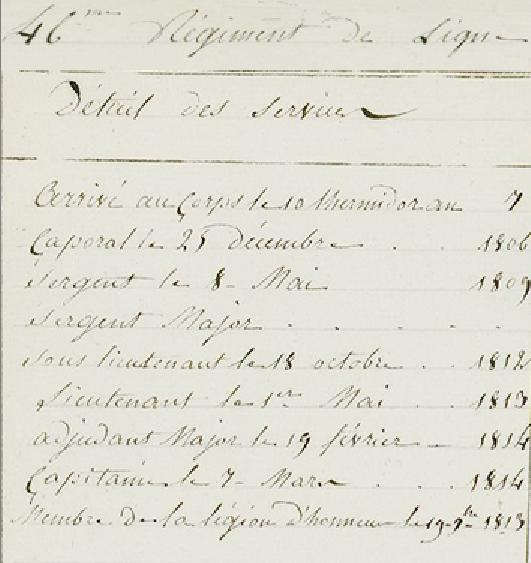 46me Régiment de Ligne
Détail des services
Arrivé au Corps le 10 thermidor an 7
Caporal le 25 décembre . . 1806
Sergent le 8 Mai 1809
Sergent Major . . . . .
Sous lieutenant le 18 octobre . . 1812
Lieutenant le 1er Mai . . 1813
adjudant Major le 19 février - 1814
Capitaine le 7 Mars . . . 1814
Membre de la légion d'honneur le 19 7bre 1813